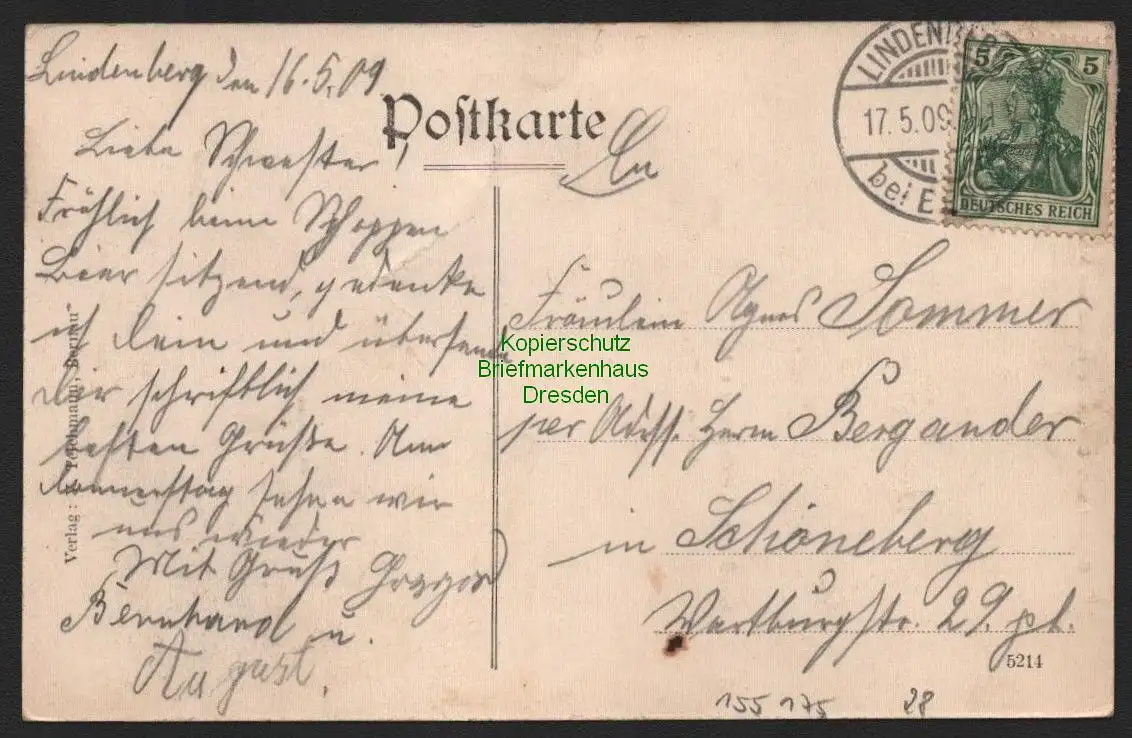 Lindenberg den 16.5.09.
Liebe Schwester!
Fröhlich beim Schoppen
Bier sitzend, gedenke
ich dein und übersende
Dir schriftlich meine
besten Grüße. Am
Donnerstag sehen wir
uns wieder
Mit Gruß
Bernhard u.
August.
Postkarte
An
Fräulein Agnes Sommer
per Adrss. Herrn Bergander
in Schöneberg
Wartburgstr. 29. pt.
LINDENBERG
17.5.09
bei
5 5
DEUTSCHES REICH
Kopierschutz
Briefmarkenhaus
Dresden
Verlag: Bernau
5214
155 175 28